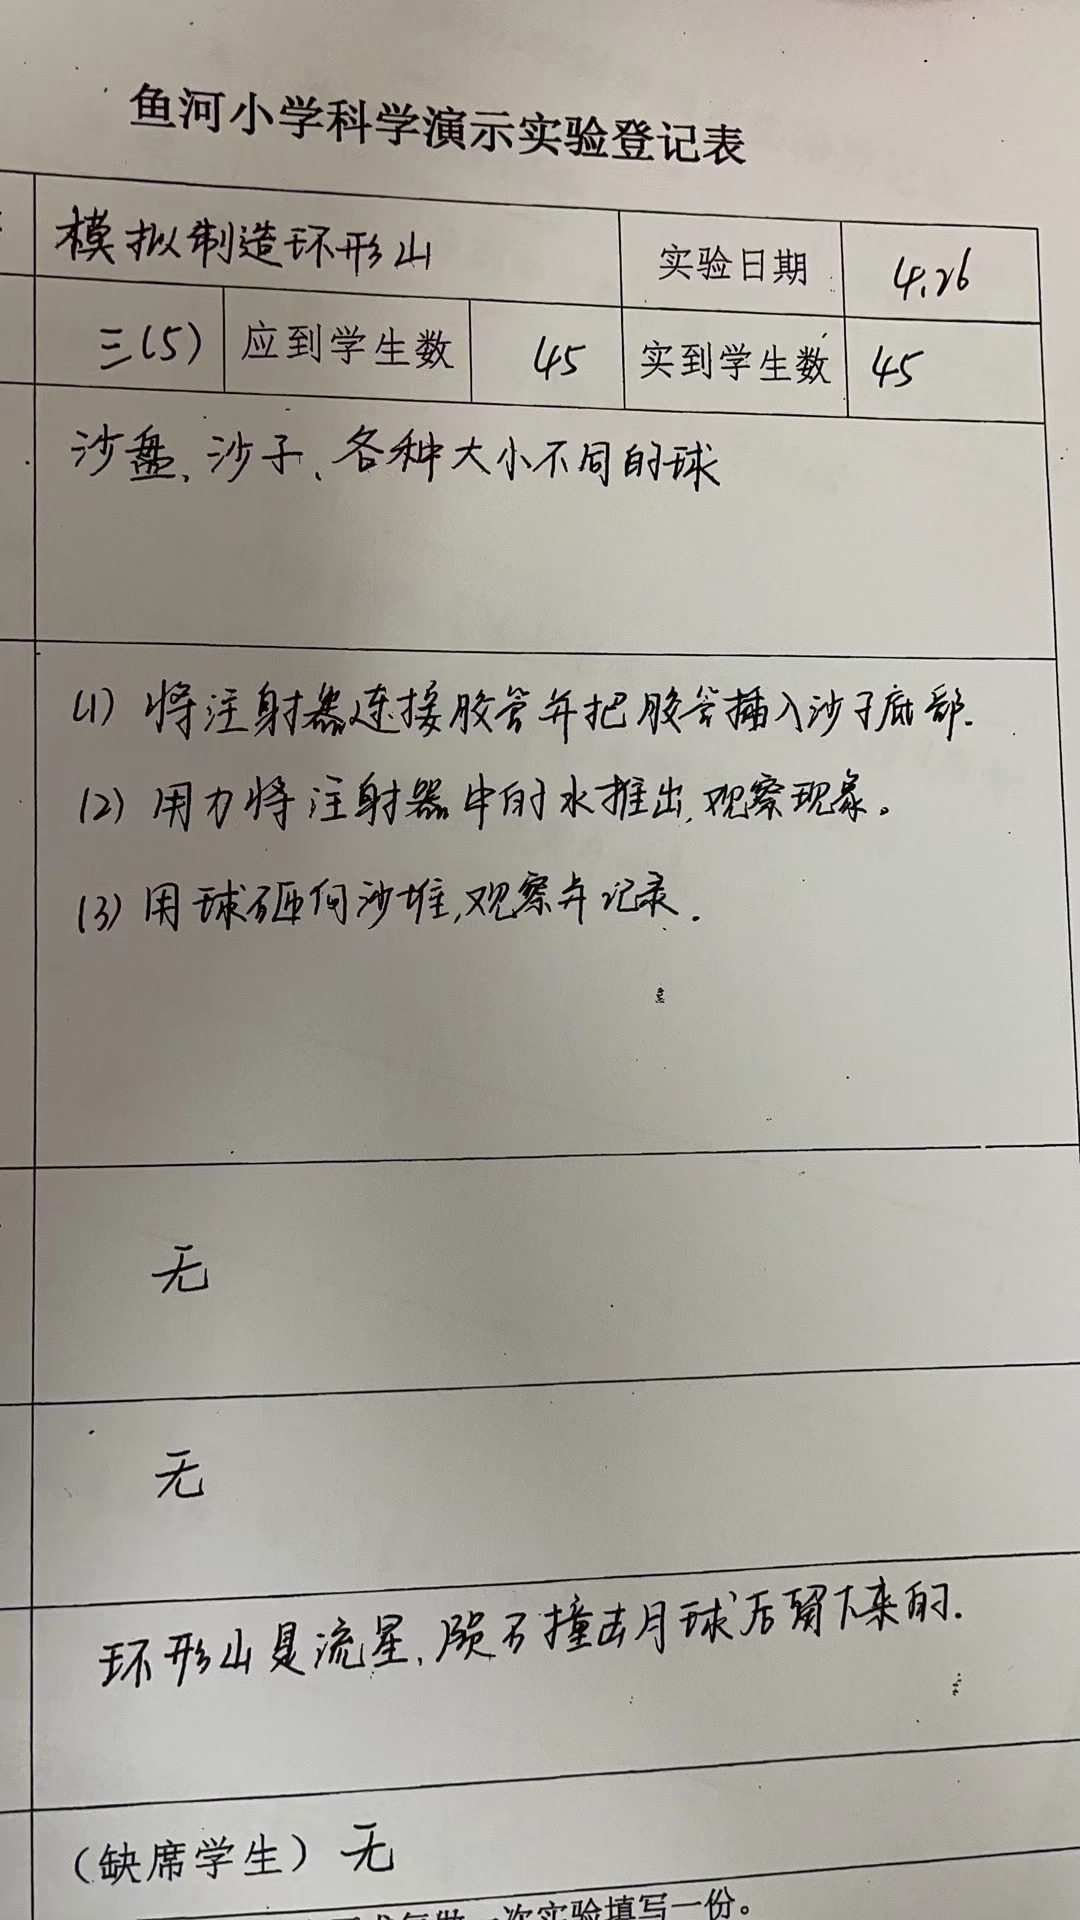 鱼河小学科学演示实验登记表
模拟制造环形山 实验日期 4.26
三(5) 应到学生数 45 实到学生数 45
沙盘、沙子、各种大小不同的球
(1) 将注射器连接胶管并把胶管插入沙子底部.
(2) 用力将注射器中的水推出,观察现象。
(3) 用球砸向沙堆,观察并记录.
无
无
环形山是流星、陨石撞击月球后留下来的.
(缺席学生) 无
次实验填写一份。